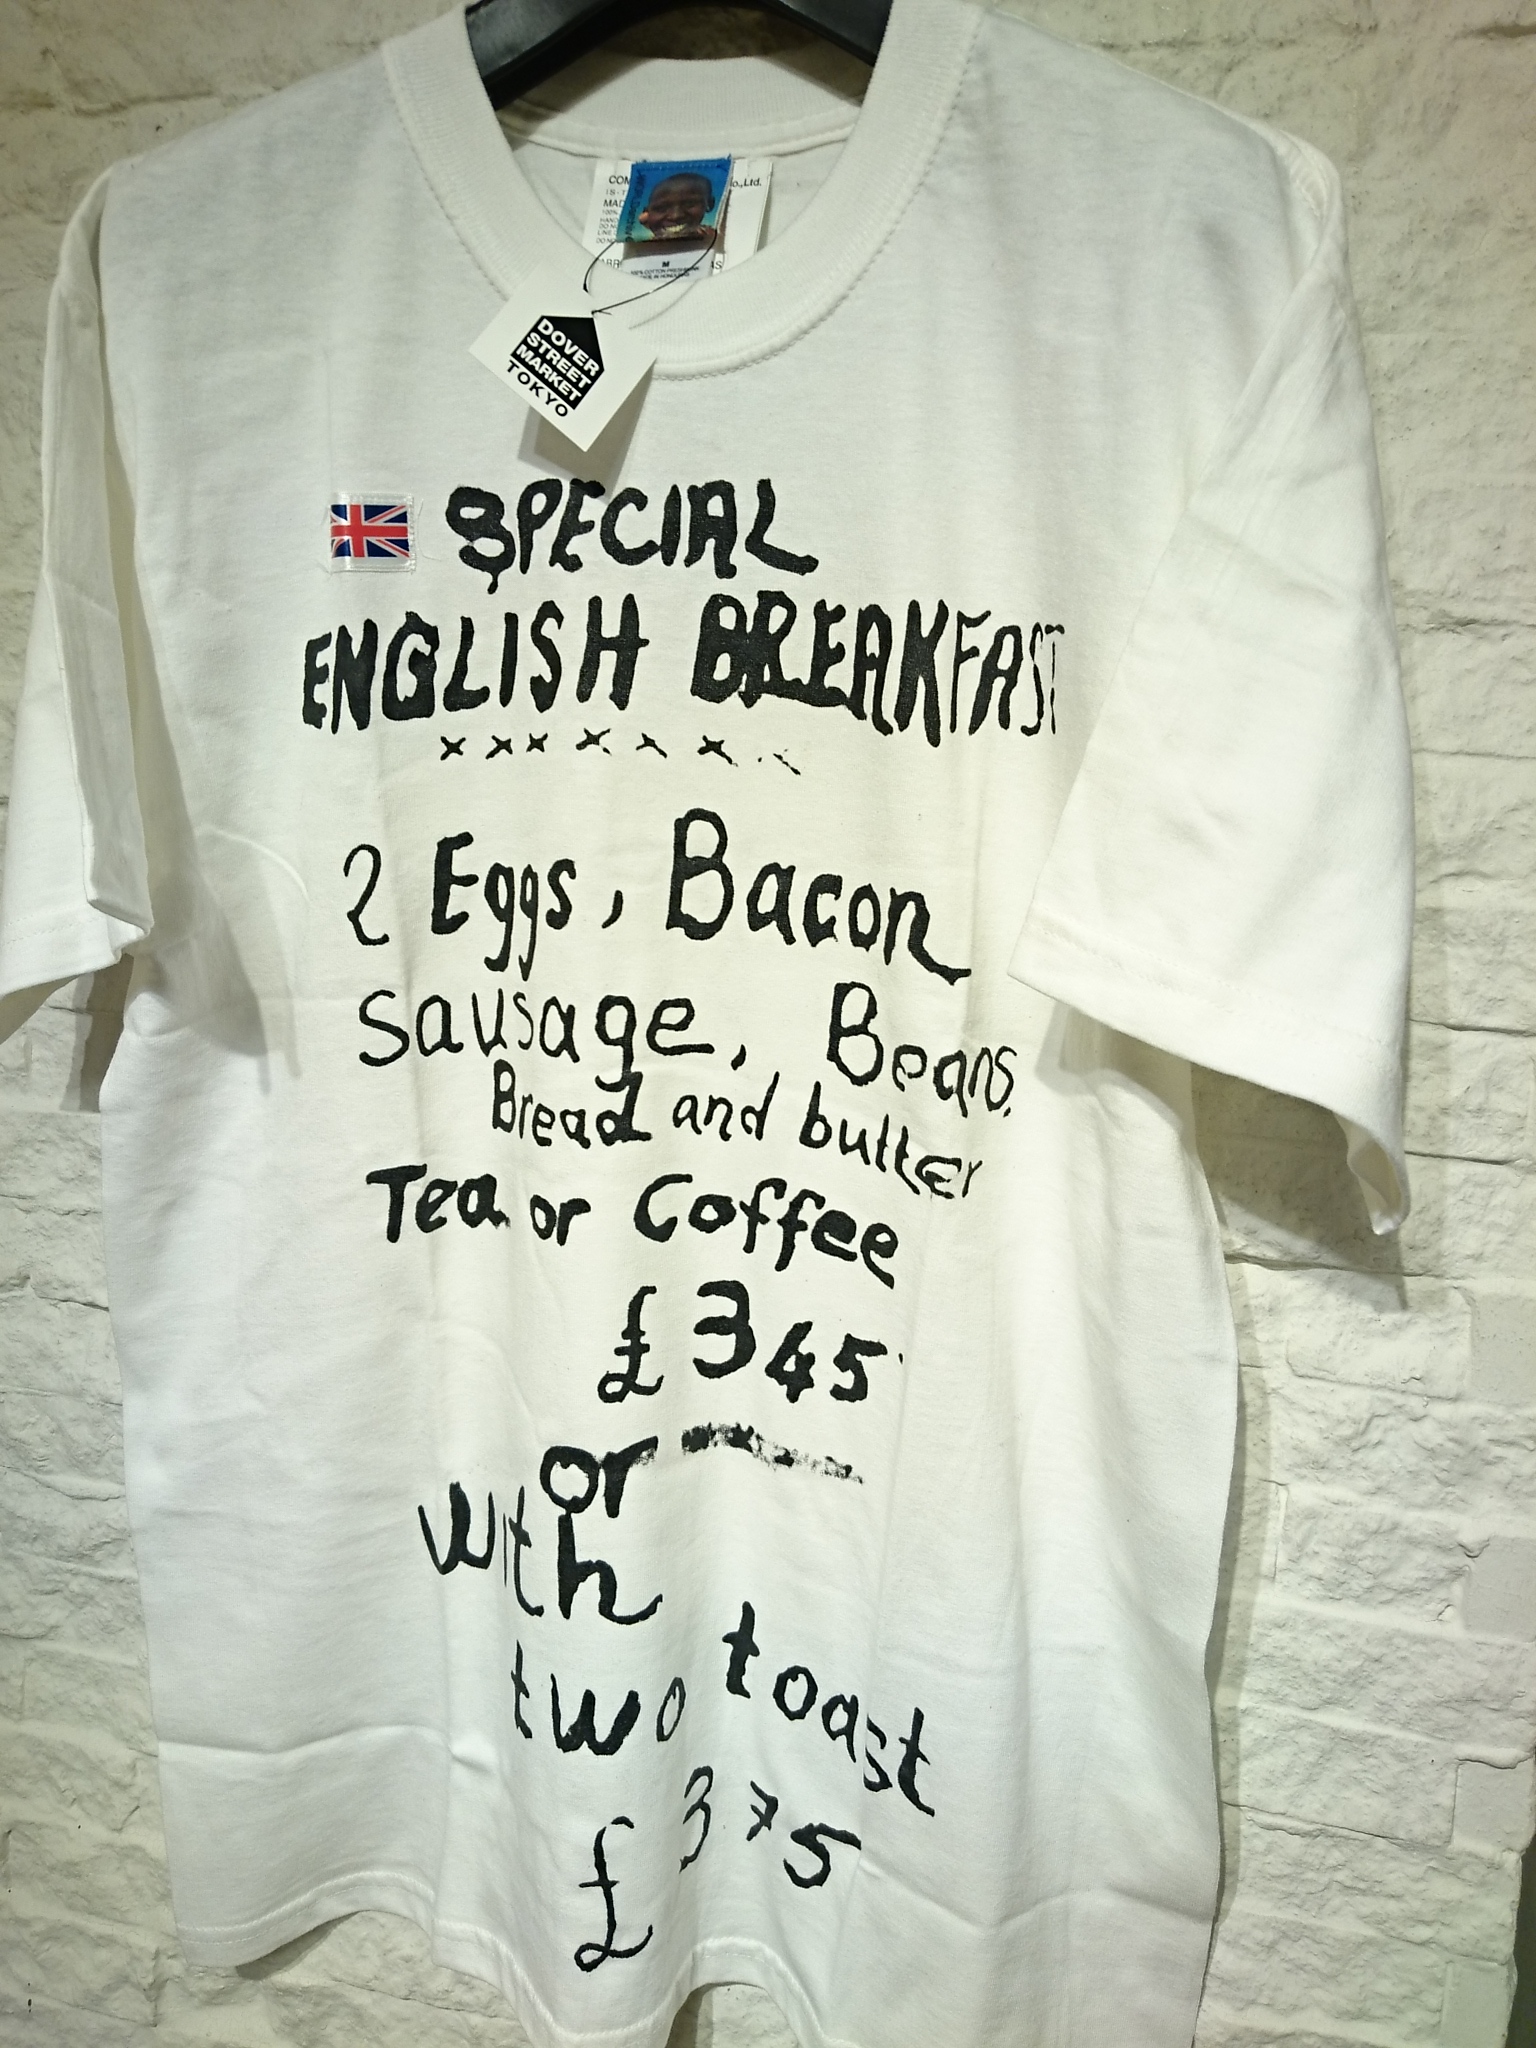 DOVER
STREET
MARKET
TOKYO
M
SPECIAL
ENGLISH BREAKFAST
x x x x x x x
2 Eggs, Bacon
Sausage, Beans.
Bread and butter
Tea or Coffee
£345
or
with
two toast
£375